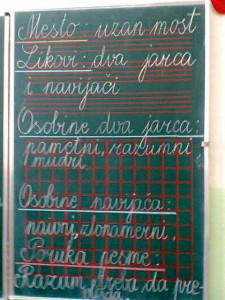 Mesto: uzan most
Likovi: dva jarca
i navijači
Osobine dva jarca:
pametni, razumni
mudri
Osobine navijača:
naivni, zlonamerni,
Poruka pesme:
Razum treba da pre-
vlada